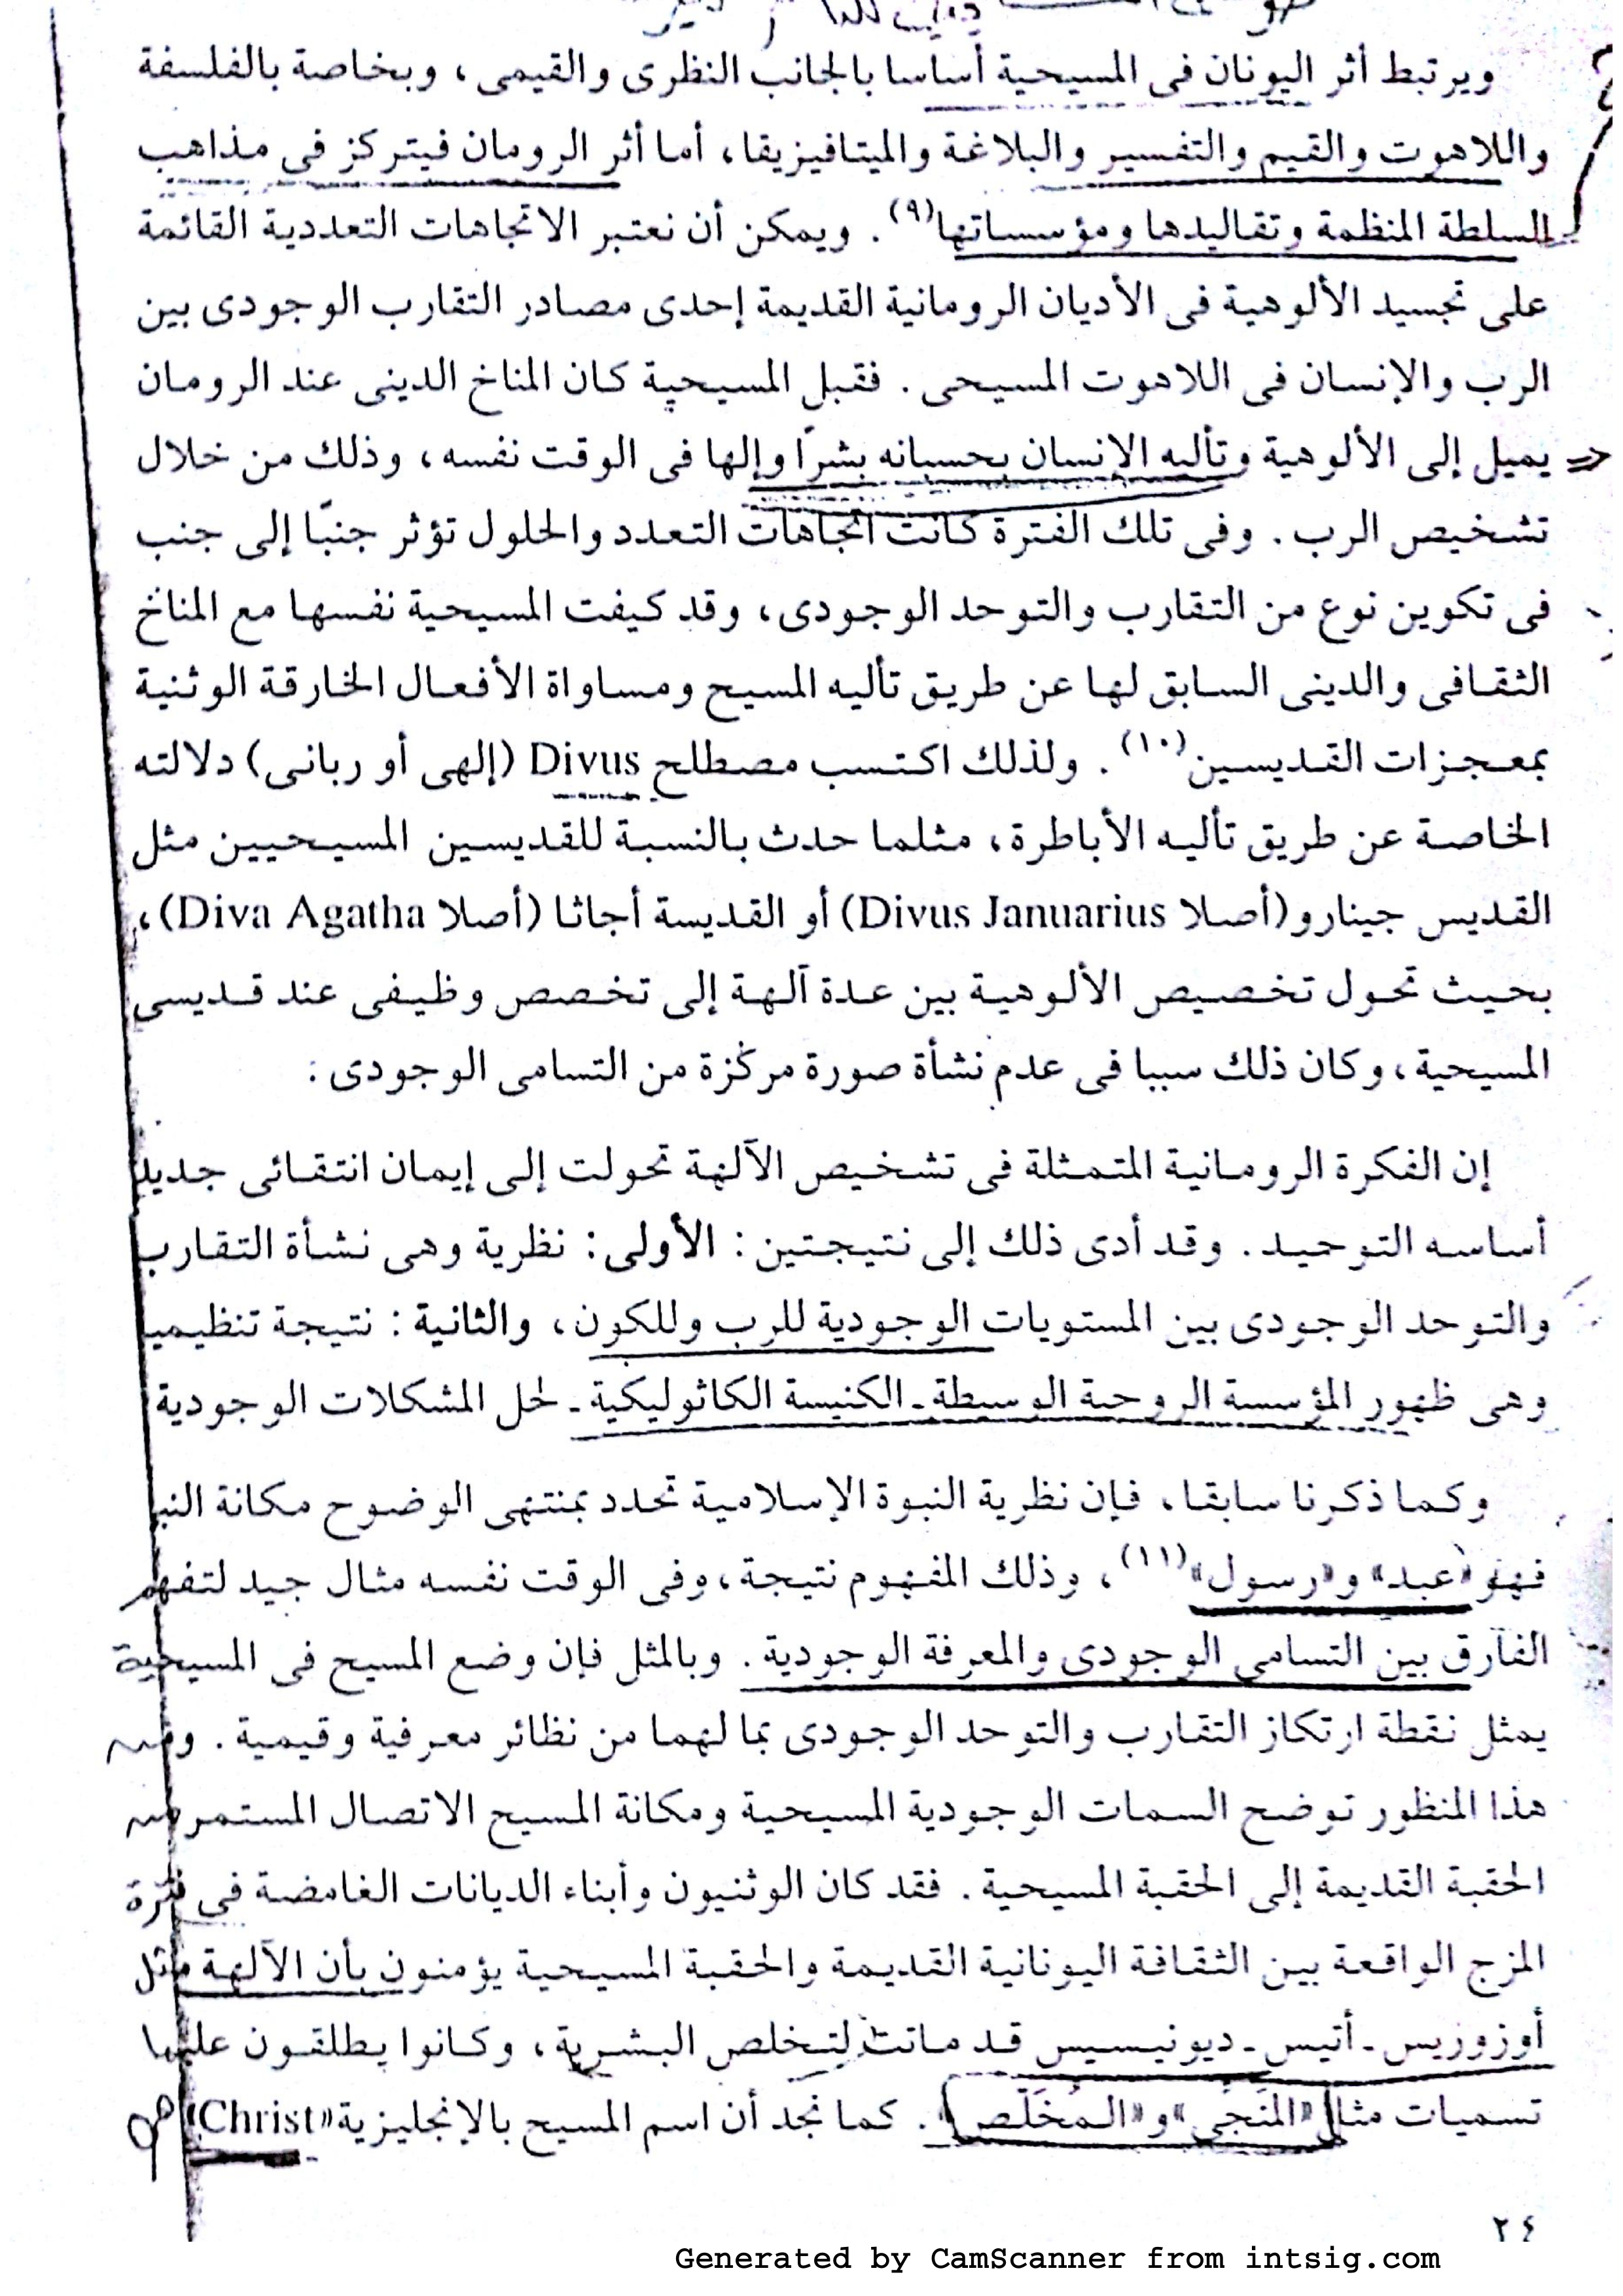 ويرتبط أثر اليونان فى المسيحية أساسا بالجانب النظرى والقيمى ، وبخاصة بالفلسفة
واللاهوت والقيم والتفسير والبلاغة والميتافيزيقا، أما أثر الرومان فيتركز فى مذاهب
السلطة المنظمة وتقاليدها ومؤسساتها(٩) . ويمكن أن نعتبر الاتجاهات التعددية القائمة
على تجسيد الألوهية فى الأديان الرومانية القديمة إحدى مصادر التقارب الوجودى بين
الرب والإنسان فى اللاهوت المسيحى . فقبل المسيحية كان المناخ الدينى عند الرومان
يميل إلى الألوهية وتأليه الإنسان بحسبانه بشرًا وإلها فى الوقت نفسه ، وذلك من خلال
تشخيص الرب . وفى تلك الفترة كانت اتجاهات التعدد والحلول تؤثر جنبًا إلى جنب
فى تكوين نوع من التقارب والتوحد الوجودى ، وقد كيفت المسيحية نفسها مع المناخ
الثقافى والدينى السابق لها عن طريق تأليه المسيح ومساواة الأفعال الخارقة الوثنية
بمعجزات القديسين(١٠) . ولذلك اكتسب مصطلح Divus (إلهى أو ربانى) دلالته
الخاصة عن طريق تأليه الأباطرة ، مثلما حدث بالنسبة للقديسين المسيحيين مثل
القديس جينارو (أصلا Divus Januarius) أو القديسة أجاثا (أصلا Diva Agatha) ،
بحيث تحول تخصيص الألوهية بين عدة آلهة إلى تخصص وظيفى عند قديسى
المسيحية ، وكان ذلك سببا فى عدم نشأة صورة مركزة من التسامى الوجودى :
إن الفكرة الرومانية المتمثلة فى تشخيص الآلهة تحولت إلى إيمان انتقائى جديد
أساسه التوحيد . وقد أدى ذلك إلى نتيجتين : الأولى : نظرية وهى نشأة التقارب
والتوحد الوجودى بين المستويات الوجودية للرب وللكون ، والثانية : نتيجة تنظيمية
وهى ظهور المؤسسة الروحية الوسيطة ـ الكنيسة الكاثوليكية ـ لحل المشكلات الوجودية
وكما ذكرنا سابقا ، فإن نظرية النبوة الإسلامية تحدد بمنتهى الوضوح مكانة النبى
فهو «عبد» و«رسول»(١١) ، وذلك المفهوم نتيجة ، وفى الوقت نفسه مثال جيد لتفهم
الفارق بين التسامى الوجودى والمعرفة الوجودية . وبالمثل فإن وضع المسيح فى المسيحية
يمثل نقطة ارتكاز التقارب والتوحد الوجودى بما لهما من نظائر معرفية وقيمية . ومن
هذا المنظور توضح السمات الوجودية المسيحية ومكانة المسيح الاتصال المستمر من
الحقبة القديمة إلى الحقبة المسيحية . فقد كان الوثنيون وأبناء الديانات الغامضة فى فترة
المزج الواقعة بين الثقافة اليونانية القديمة والحقبة المسيحية يؤمنون بأن الآلهة مثل
أوزوريس ـ أتيس ـ ديونيسيس قد ماتت لتخلص البشرية ، وكانوا يطلقون عليها
تسميات مثل «المَنَجِّى» و«المُخَلِّص» . كما نجد أن اسم المسيح بالإنجليزية «Christ»
٢٤
Generated by CamScanner from intsig.com